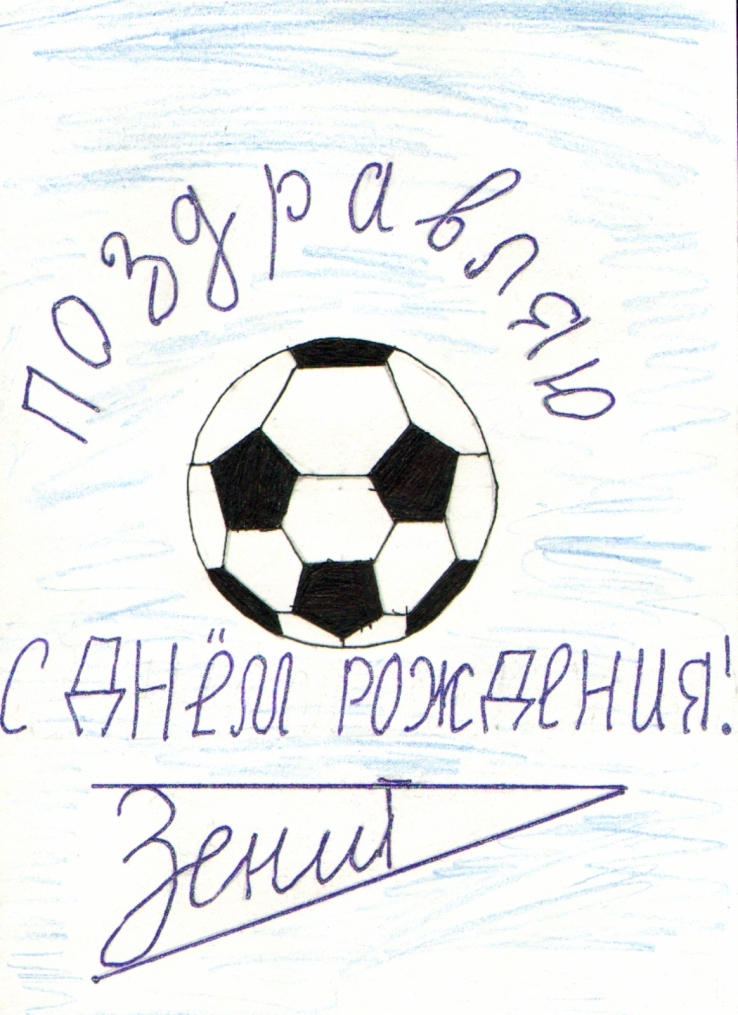 поздравляю
с днём рождения!
Зенит